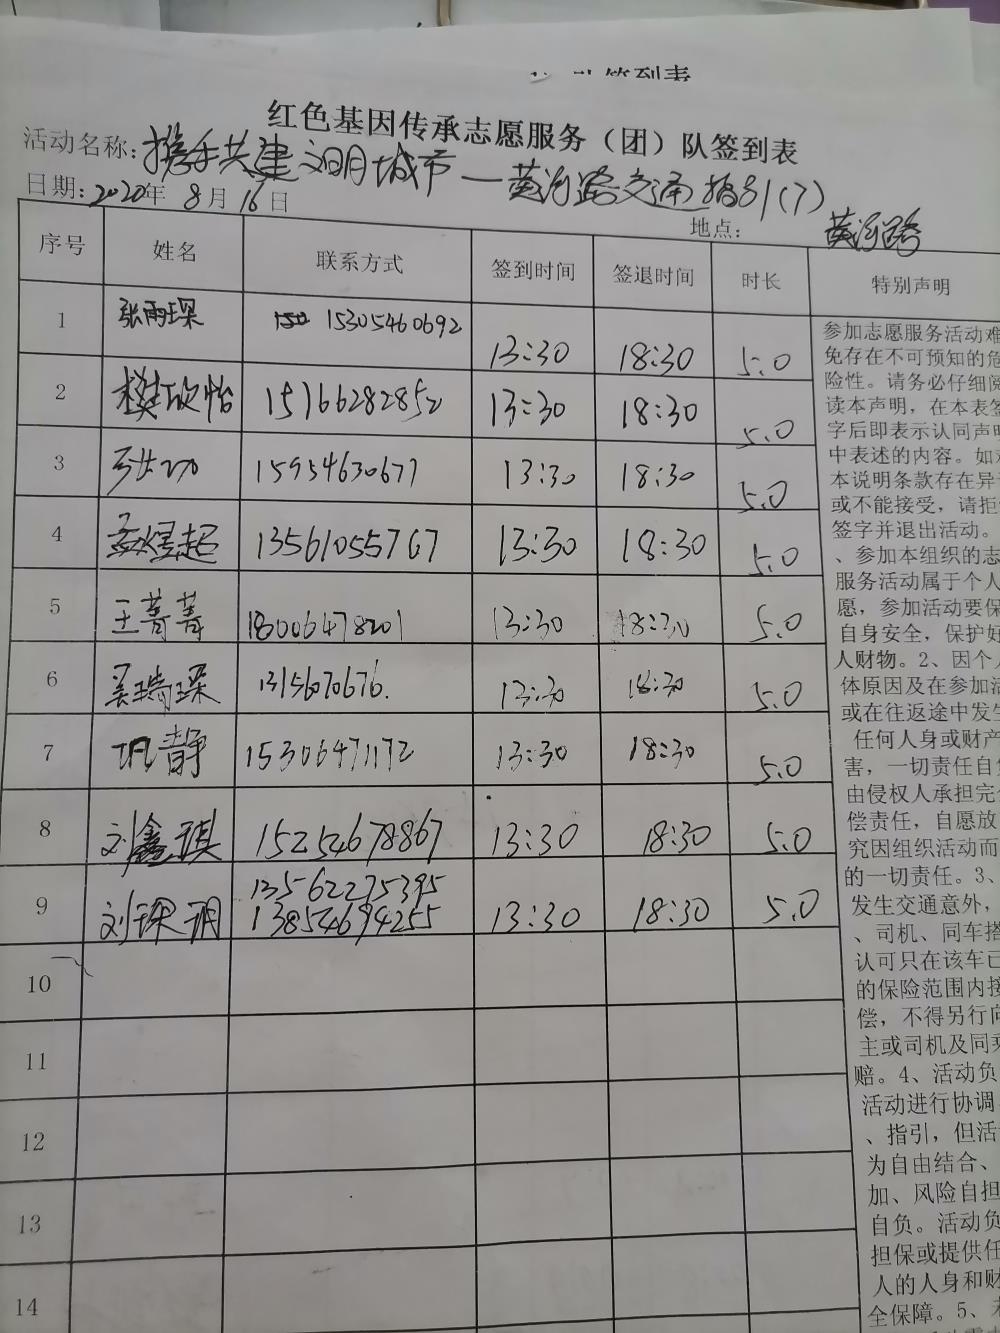 签到表
红色基因传承志愿服务（团）队签到表
活动名称：携手共建文明城市—黄河路交通指引(7)
日期：2020年 8月 16日
地点： 黄河路
序号 姓名 联系方式 签到时间 签退时间 时长 特别声明
1 张雨琛 15305460692 13:30 18:30 5.0
2 樊欣怡 15166282852 13:30 18:30 5.0
3 15954630677 13:30 18:30 5.0
4 13561055767 13:30 18:30 5.0
5 王菁菁 18006478201 13:30 18:30 5.0
6 吴瑞琛 1315670676. 13:30 18:30 5.0
7 巩静 15306471172 13:30 18:30 5.0
8 刘鑫琪 15254678867 13:30 18:30 5.0
13562275395
9 刘琛玥 13854694255 13:30 18:30 5.0
10
11
12
13
14
参加志愿服务活动难
免存在不可预知的危
险性。请务必仔细阅
读本声明，在本表签
字后即表示认同声明
中表述的内容。如对
本说明条款存在异
或不能接受，请拒
签字并退出活动。
、参加本组织的志
服务活动属于个人
愿，参加活动要保
自身安全，保护好
人财物。2、因个人
体原因及在参加活
或在往返途中发生
任何人身或财产
害，一切责任自负
由侵权人承担完全
偿责任，自愿放
究因组织活动而
的一切责任。3、
发生交通意外，
、司机、同车搭
认可只在该车已
的保险范围内接
偿，不得另行向
主或司机及同乘
赔。4、活动负
活动进行协调
、指引，但活
为自由结合、
加、风险自担
自负。活动负
担保或提供任
人的人身和财
全保障。5、